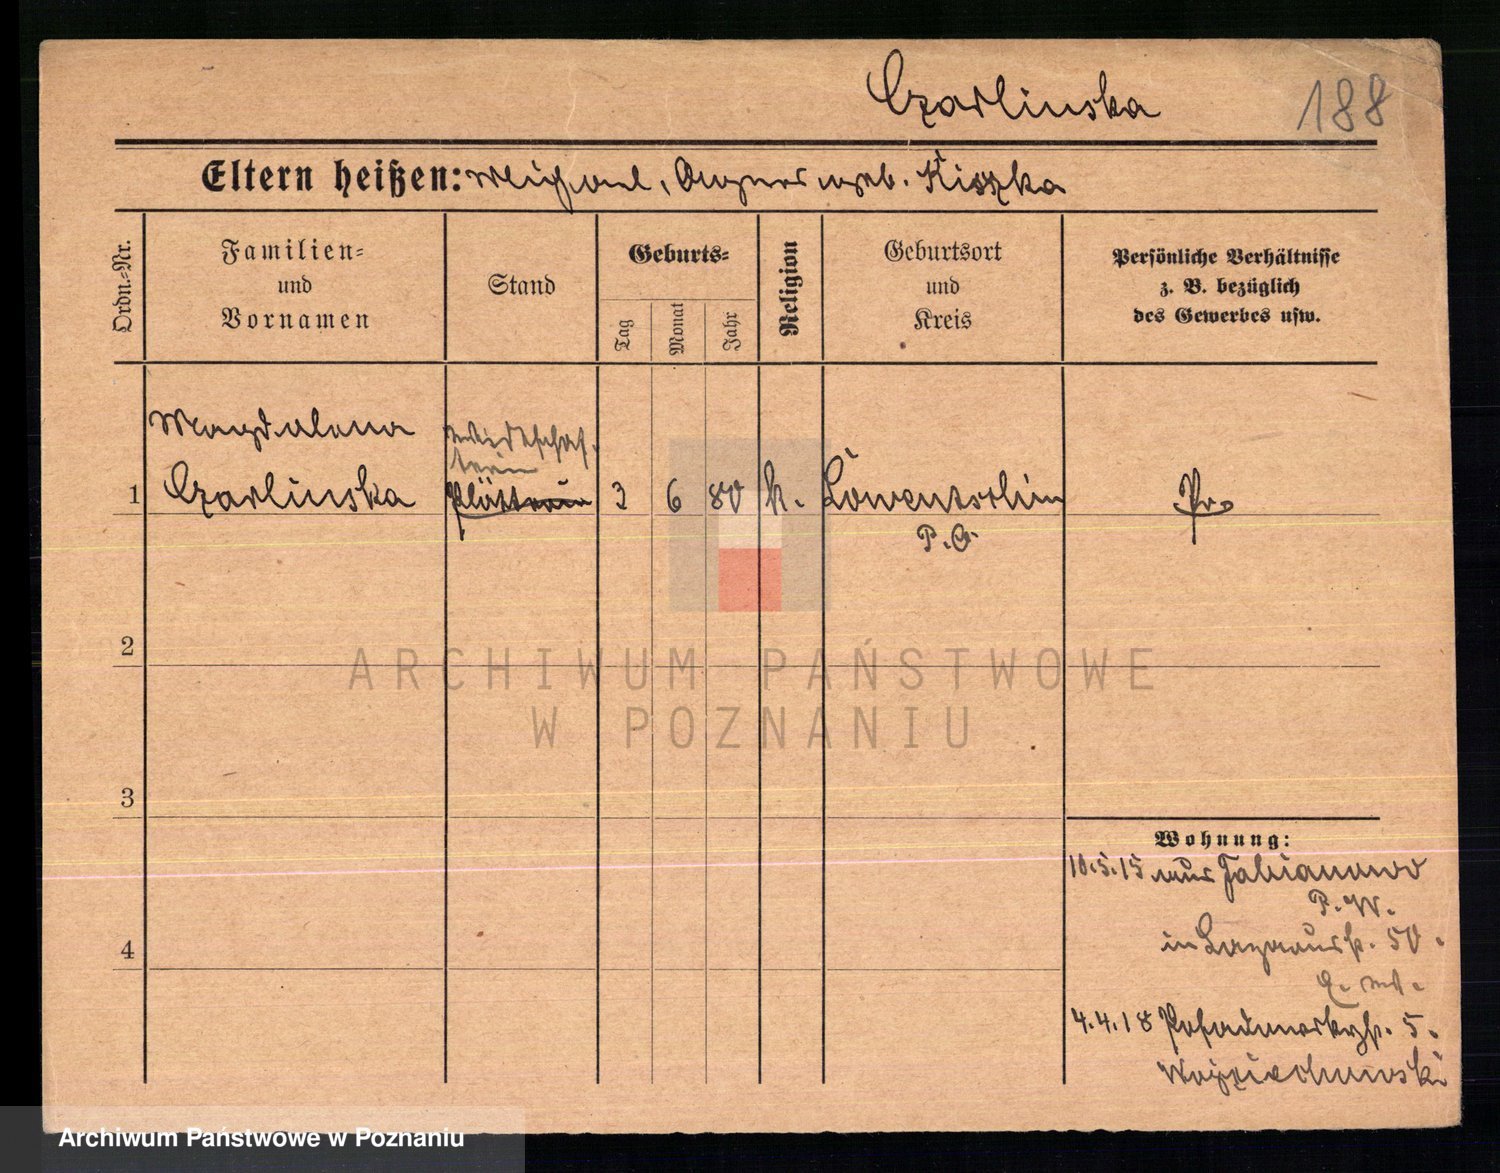 Czarlinska
188
Eltern heißen: Michael, Agnes geb. Kiszka
Ordn.-Nr.
Familien-
und
Vornamen
Stand
Geburts-
Tag
Monat
Jahr
Religion
Geburtsort
und
Kreis
Persönliche Verhältnisse
z. B. bezüglich
des Gewerbes usw.
Magdalena
Wirtschaf-
terin
1 Czarlinska Plätterin 3 6 80 k. Löwencin Pr.
P. O.
2
3
4
Wohnung:
10.5.15 aus Fabianowo
P. W.
in Lazarusstr. 50.
4.4.18 Posadowskystr. 5.
Woyziechowski
ARCHIWUM PAŃSTWOWE
W POZNANIU
Archiwum Państwowe w Poznaniu